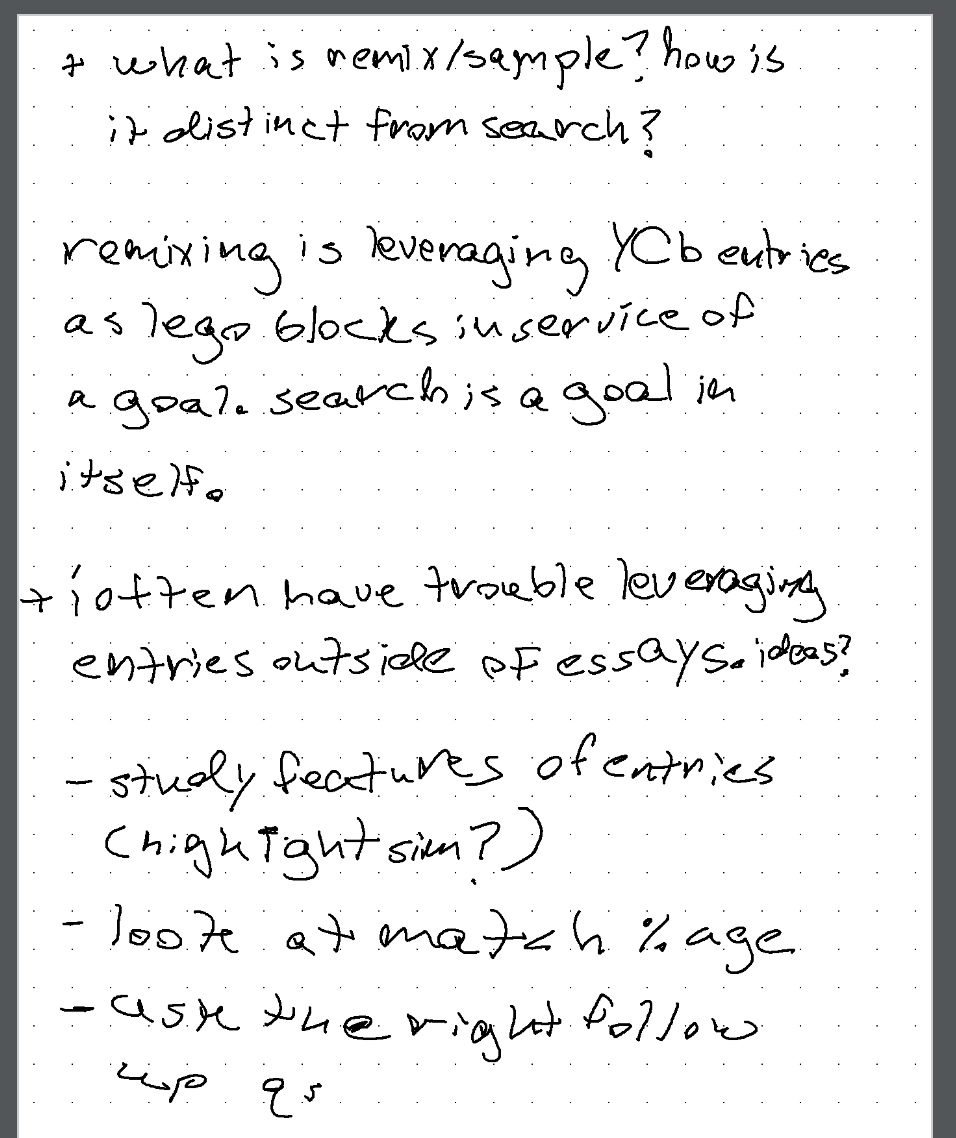 + what is remix/sample? how is
it distinct from search?
remixing is leveraging YCb entries
as lego blocks in service of
a goal. search is a goal in
itself.
+ i often have trouble leveraging
entries outside of essays. ideas?
- study features of entries
(highlight sim?)
- look at match %age
- ask the right follow
up qs